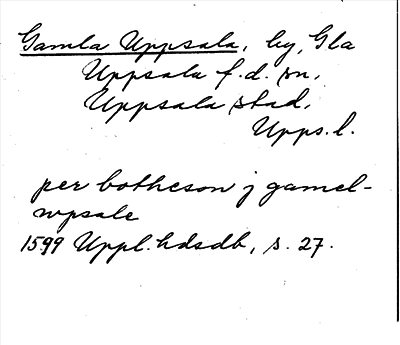 Gamla Uppsala, by, Gla
Uppsala f.d. sn,
Uppsala stad,
Upps.l.
per botheson j gamel-
wpsale
1599 Uppl.hdsdb, s. 27.